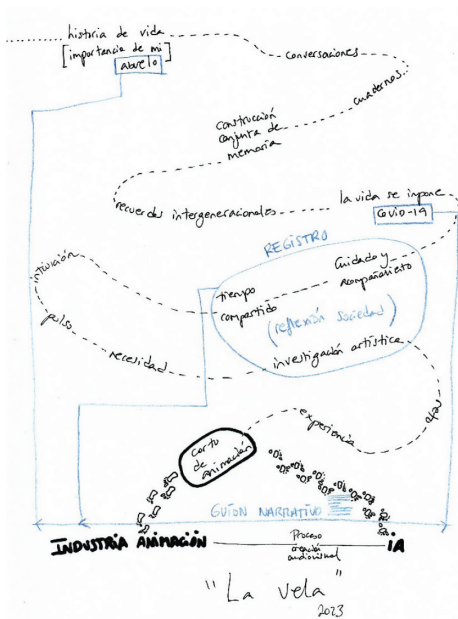 historia de vida
[importancia de mi]
abuelo
conversaciones
cuadernos...
construcción
conjunta de
memoria
recuerdos intergeneracionales
la vida se impone
COVID-19
REGISTRO
Cuidado y
acompañamiento
tiempo
compartido
intuición
(reflexión sociedad)
pulso
necesidad
investigación artística
reto
experiencia
corto
de
animación
GUIÓN NARRATIVO
INDUSTRIA ANIMACIÓN
Proceso
creación
audiovisual
IA
"La vela"
2023